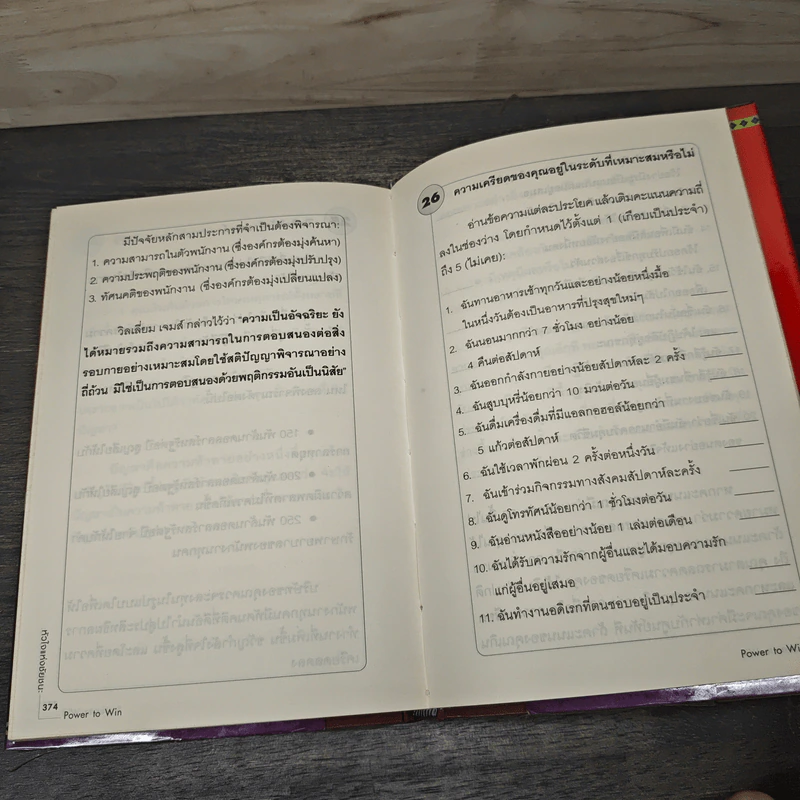 มีปัจจัยหลักสามประการที่จำเป็นต้องพิจารณา:
1. ความสามารถในตัวพนักงาน (ซึ่งองค์กรต้องมุ่งค้นหา)
2. ความประพฤติของพนักงาน (ซึ่งองค์กรต้องมุ่งปรับปรุง)
3. ทัศนคติของพนักงาน (ซึ่งองค์กรต้องมุ่งเปลี่ยนแปลง)
วิลเลี่ยม เจมส์ กล่าวไว้ว่า "ความเป็นอัจฉริยะ ยัง
ได้หมายรวมถึงความสามารถในการตอบสนองต่อสิ่ง
รอบกายอย่างเหมาะสมโดยใช้สติปัญญาพิจารณาอย่าง
ถี่ถ้วน มิใช่เป็นการตอบสนองด้วยพฤติกรรมอันเป็นนิสัย"
374
Power to Win
26 ความเครียดของคุณอยู่ในระดับที่เหมาะสมหรือไม่
อ่านข้อความแต่ละประโยค แล้วเติมคะแนนความถี่
ลงในช่องว่าง โดยกำหนดไว้ตั้งแต่ 1 (เกือบเป็นประจำ)
ถึง 5 (ไม่เคย):
1. ฉันทานอาหารเช้าทุกวันและอย่างน้อยหนึ่งมื้อ
ในหนึ่งวันต้องเป็นอาหารที่ปรุงสุขใหม่ๆ
2. ฉันนอนมากกว่า 7 ชั่วโมง อย่างน้อย
4 คืนต่อสัปดาห์
3. ฉันออกกำลังกายอย่างน้อยสัปดาห์ละ 2 ครั้ง
4. ฉันสูบบุหรี่น้อยกว่า 10 มวนต่อวัน
5. ฉันดื่มเครื่องดื่มที่มีแอลกอฮอล์น้อยกว่า
5 แก้วต่อสัปดาห์
6. ฉันใช้เวลาพักผ่อน 2 ครั้งต่อหนึ่งวัน
7. ฉันเข้าร่วมกิจกรรมทางสังคมสัปดาห์ละครั้ง
8. ฉันดูโทรทัศน์น้อยกว่า 1 ชั่วโมงต่อวัน
9. ฉันอ่านหนังสืออย่างน้อย 1 เล่มต่อเดือน
10. ฉันได้รับความรักจากผู้อื่นและได้มอบความรัก
แก่ผู้อื่นอยู่เสมอ
11. ฉันทำงานอดิเรกที่ตนชอบอยู่เป็นประจำ
Power to Win